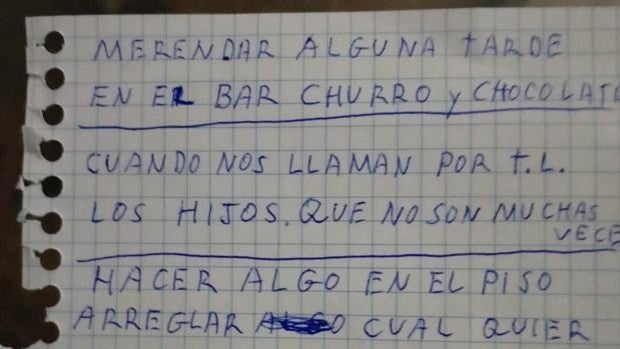 MERENDAR ALGUNA TARDE
EN EL BAR CHURRO Y CHOCOLATE
CUANDO NOS LLAMAN POR T.L.
LOS HIJOS. QUE NO SON MUCHAS
VECE
HACER ALGO EN EL PISO
ARREGLAR CUAL QUIER